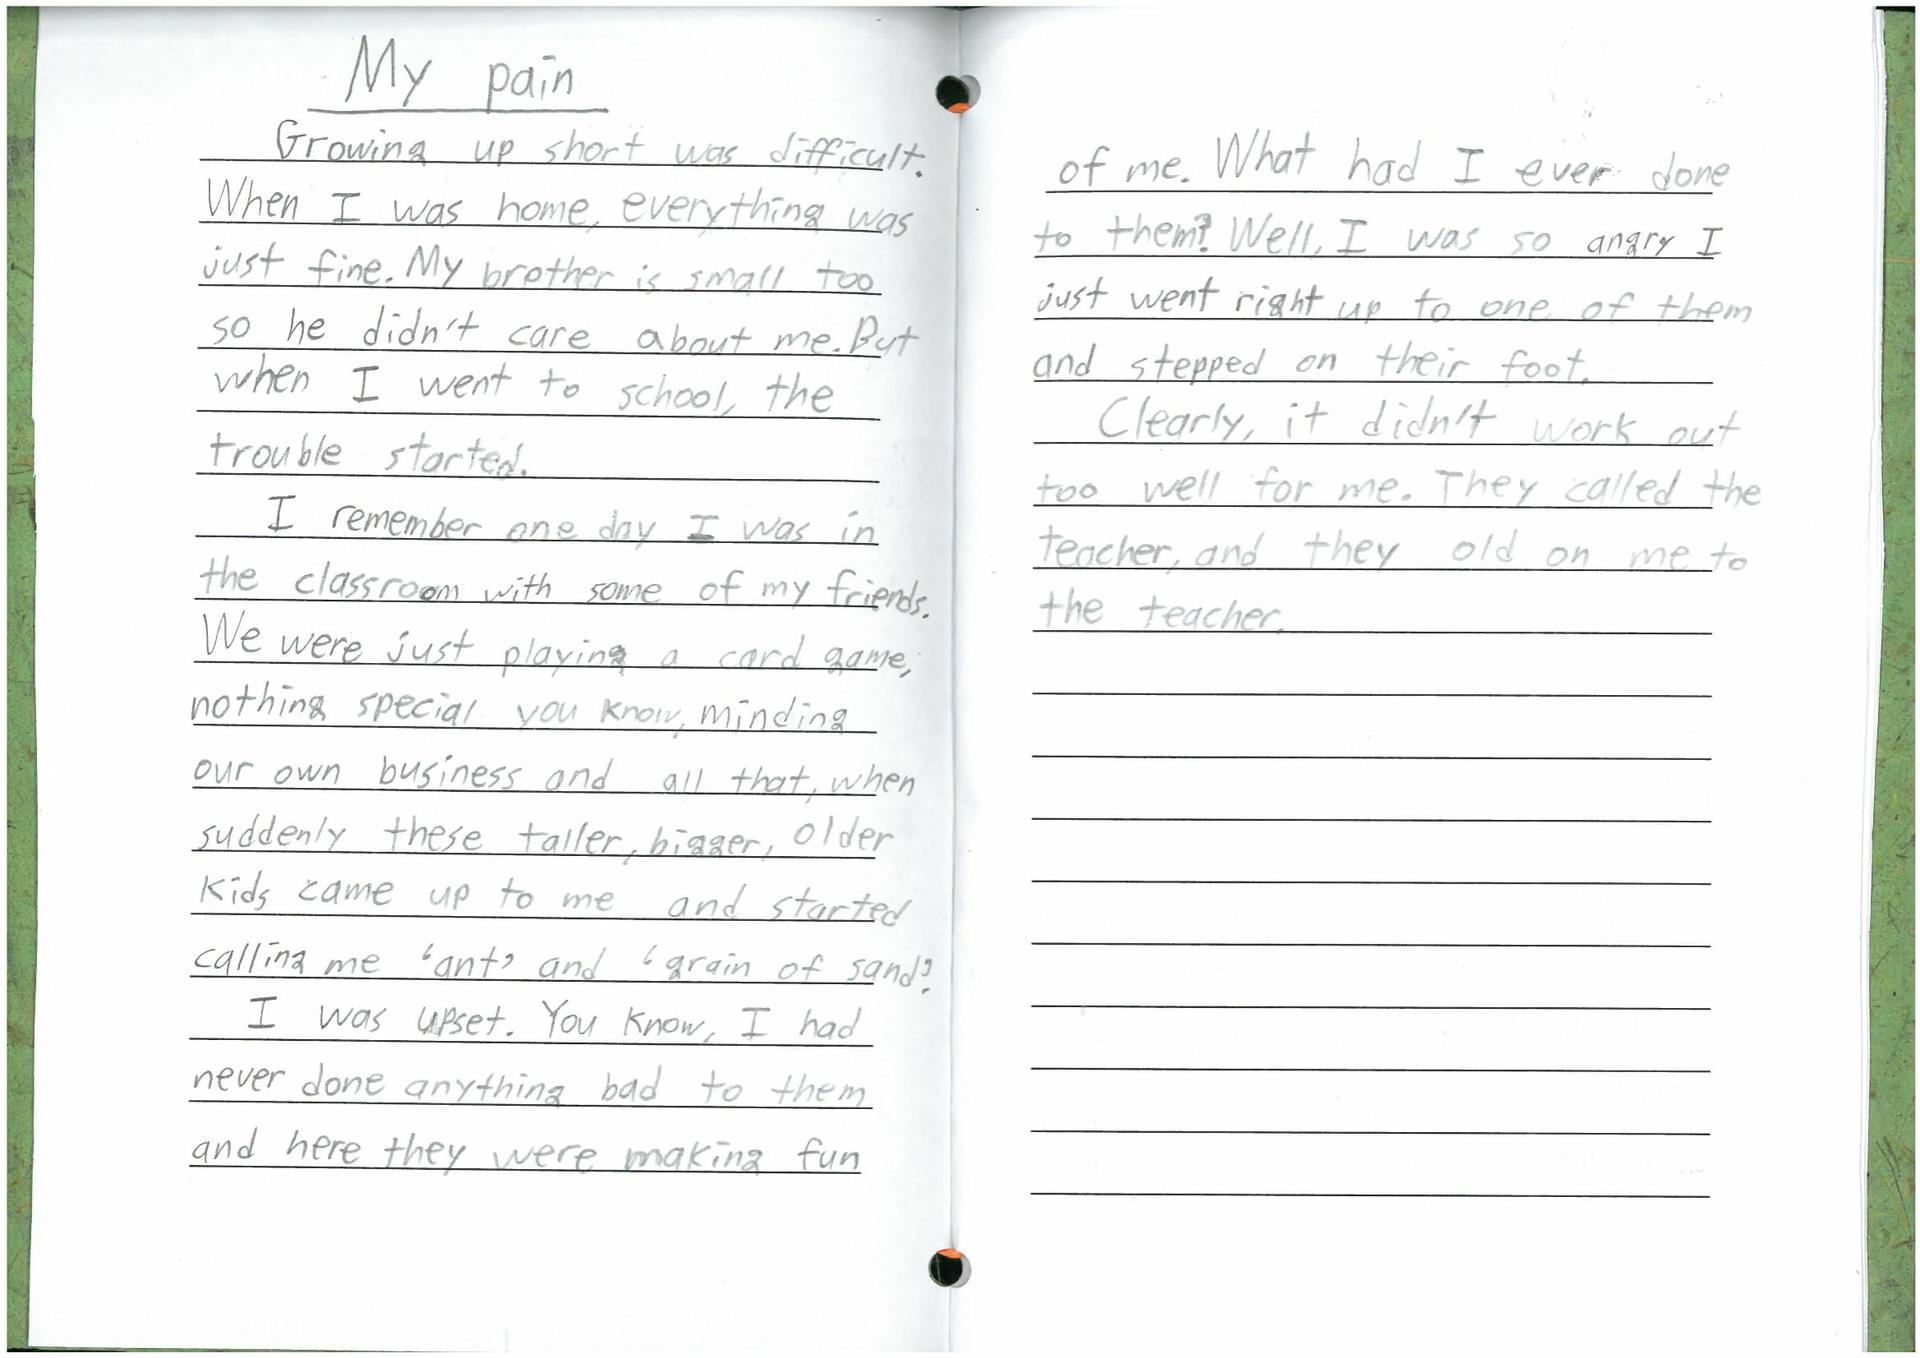 My pain
Growing up short was difficult.
When I was home, everything was
just fine. My brother is small too
so he didn't care about me. But
when I went to school, the
trouble started.
I remember one day I was in
the classroom with some of my friends.
We were just playing a card game,
nothing special you know, minding
our own business and all that, when
suddenly these taller, bigger, older
kids came up to me and started
calling me 'ant' and 'grain of sand'.
I was upset. You know, I had
never done anything bad to them
and here they were making fun
of me. What had I ever done
to them? Well, I was so angry I
just went right up to one of them
and stepped on their foot.
Clearly, it didn't work out
too well for me. They called the
teacher, and they old on me to
the teacher.